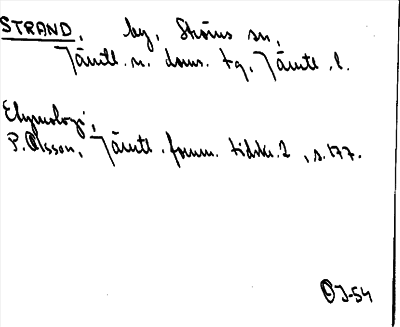 STRAND, by, Ströms sn,
Jämtl. n. doms. tg, Jämtl. l.
Etymologi,
P. Olsson, Jämtl. fornm. tidskr. 2, s. 177.
J-54